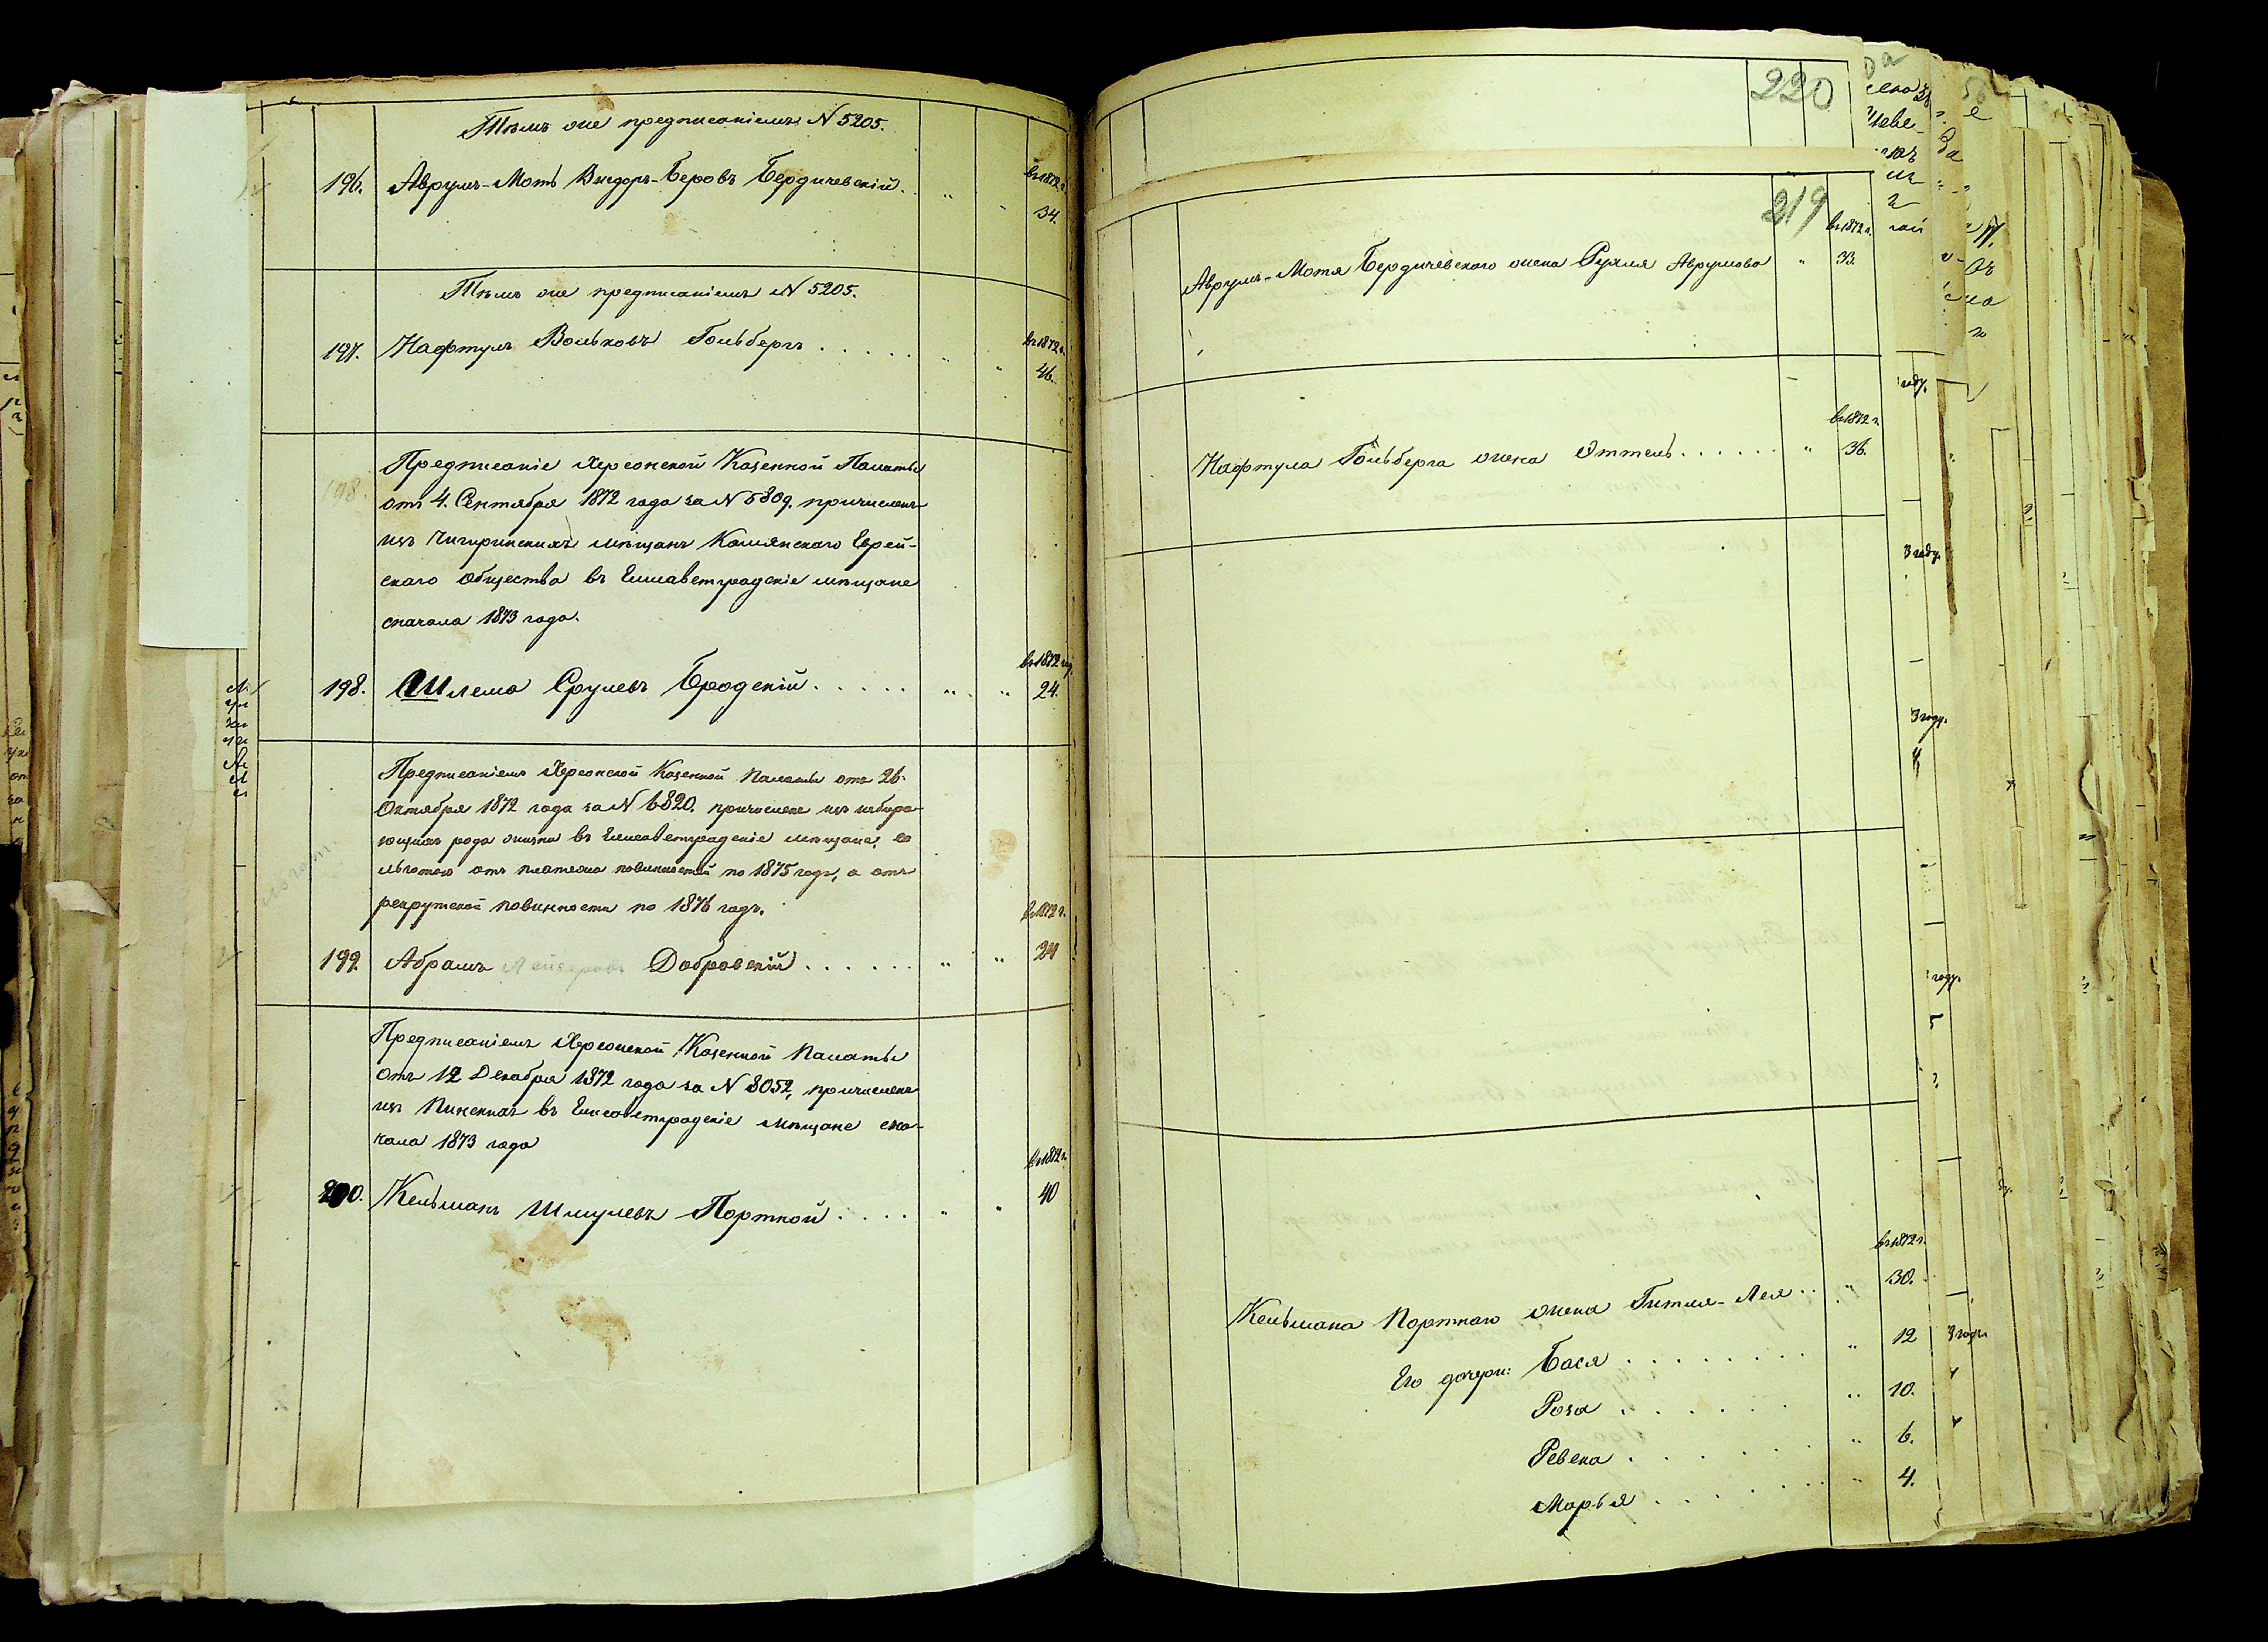 Тѣмъ же предписаніемъ N 5205.
196. Аврумъ-Моть Вигдоръ-Беровъ Бердичевскій. " " въ 1872 г.
34.
Тѣмъ же предписаніемъ N 5205.
197. Нафтулъ Вольковъ Гольбергъ . . . . . " " въ 1872 г.
46.
198. Предписаніе Херсонской Казенной Палаты
отъ 4. Сентября 1872 года за N 5809. причисленъ
изъ Чигиринскихъ мѣщанъ Каменскаго Еврей-
скаго Общества въ Елисаветградскіе мѣщане
сначала 1873 года.
въ 1872 г.
198. Шлема Срулевъ Бродскій . . . . . " " 24.
Предписаніемъ Херсонской Казенной Палаты отъ 26.
Октября 1872 года за N 6820. причисленъ изъ избира-
ющихъ рода жизни въ Елисаветградскіе мѣщане, со
льготою отъ платежа повинностей по 1875 годъ, а отъ
рекрутской повинности по 1876 годъ.
въ 1872 г.
199. Абрамъ Лейзеровъ Добровскій . . . . . . " " 24
Предписаніемъ Херсонской Казенной Палаты
отъ 12 Декабря 1872 года за N 8052, причисленъ
изъ Пинскихъ въ Елисаветградскіе мѣщане сна-
чала 1873 года
въ 1872 г.
200. Кельманъ Шмулевъ Портной . . . . " " 40
220
219
въ 1872 г.
Аврумъ-Мотя Бердичевскаго жена Рухля Аврумова " 33.
въ 1872 г.
Нафтула Гольберга жена Эттель . . . . . . " 36.
въ 1872 г.
Кельмана Портнаго жена Гитля-Лея . . " 30.
Его дочери: Бася . . . . . . . . " 12
Роза . . . . . . " 10.
Ревека . . . . . . " 6.
Марья . . . . . . " 4.